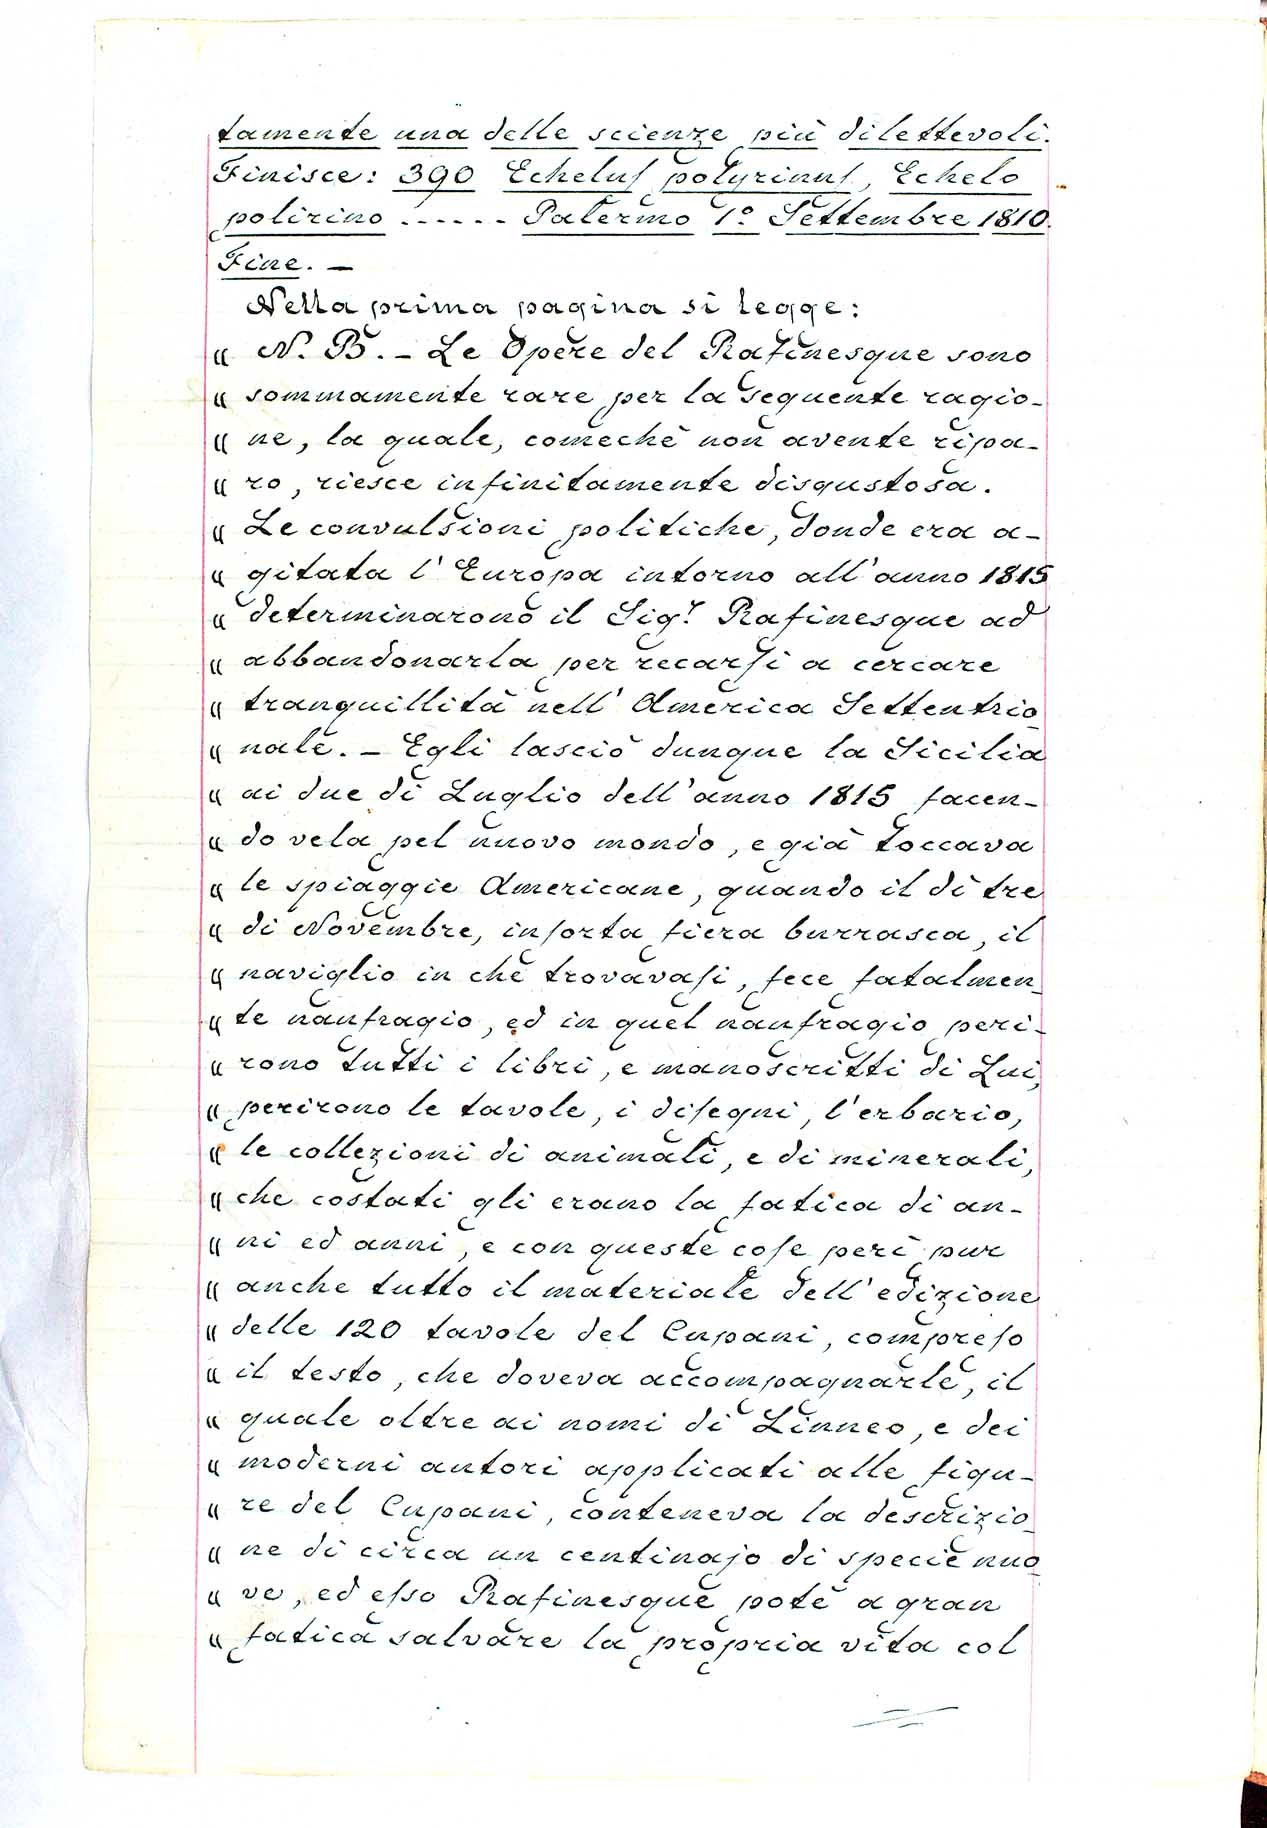 tamente una delle scienze più dilettevoli.
Finisce: 390 Echeluſ polyrinuſ, Echelo
polirino ...... Palermo 1º Settembre 1810.
Fine. –
Nella prima pagina si legge:
« N. B. – Le Opere del Rafinesque sono
« sommamente rare per la seguente ragio-
« ne, la quale, comechè non avente ripa-
« ro, riesce infinitamente disgustosa.
« Le convulsioni politiche, donde era a-
« gitata l'Europa intorno all'anno 1815
« determinarono il Sigr. Rafinesque ad
« abbandonarla per recarſi a cercare
« tranquillità nell'America Settentrio
« nale. – Egli lasciò dunque la Sicilia
« ai due di Luglio dell'anno 1815 facen-
« do vela pel nuovo mondo, e già toccava
« le spiaggie Americane, quando il dì tre
« di Novembre, inſorta fiera burrasca, il
« naviglio in che trovavaſi, fece fatalmen-
« te naufragio, ed in quel naufragio peri-
« rono tutti i libri, e manoscritti di Lui,
« perirono le tavole, i diſegni, l'erbario,
« le collezioni di animali, e di minerali,
« che costati gli erano la fatica di an-
« ni ed anni, e con queste coſe perì pur
« anche tutto il materiale dell'edizione
« delle 120 tavole del Cupani, compreſo
« il testo, che doveva accompagnarle, il
« quale oltre ai nomi di Linneo, e dei
« moderni autori applicati alle figu-
« re del Cupani, conteneva la descrizio-
« ne di circa un centinajo di specie nuo-
« ve, ed eſso Rafinesque potè a gran
« fatica salvare la propria vita col